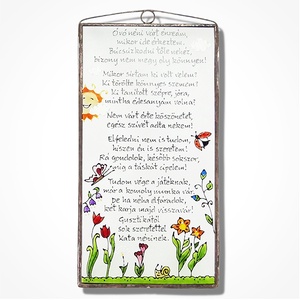 Óvó néni várt engem,
mikor ide érkeztem.
Búcsúzkodni tőle nehéz,
bizony nem megy oly könnyen!
Mikor sírtam ki volt velem?
Ki törölte könnyes szemem?
Ki tanított szépre, jóra,
mintha édesanyám volna?
Nem várt érte köszönetet,
egész szívét adta nekem!
Elfeledni nem is tudom,
hiszen én is szeretem!
Rá gondolok, később sokszor,
míg a táskát cipelem!
Tudom vége a játéknak,
már a komoly munka vár.
De ha néha elfáradok,
két karja majd visszavár!
Gusztikától
sok szeretettel
Kata néninek.